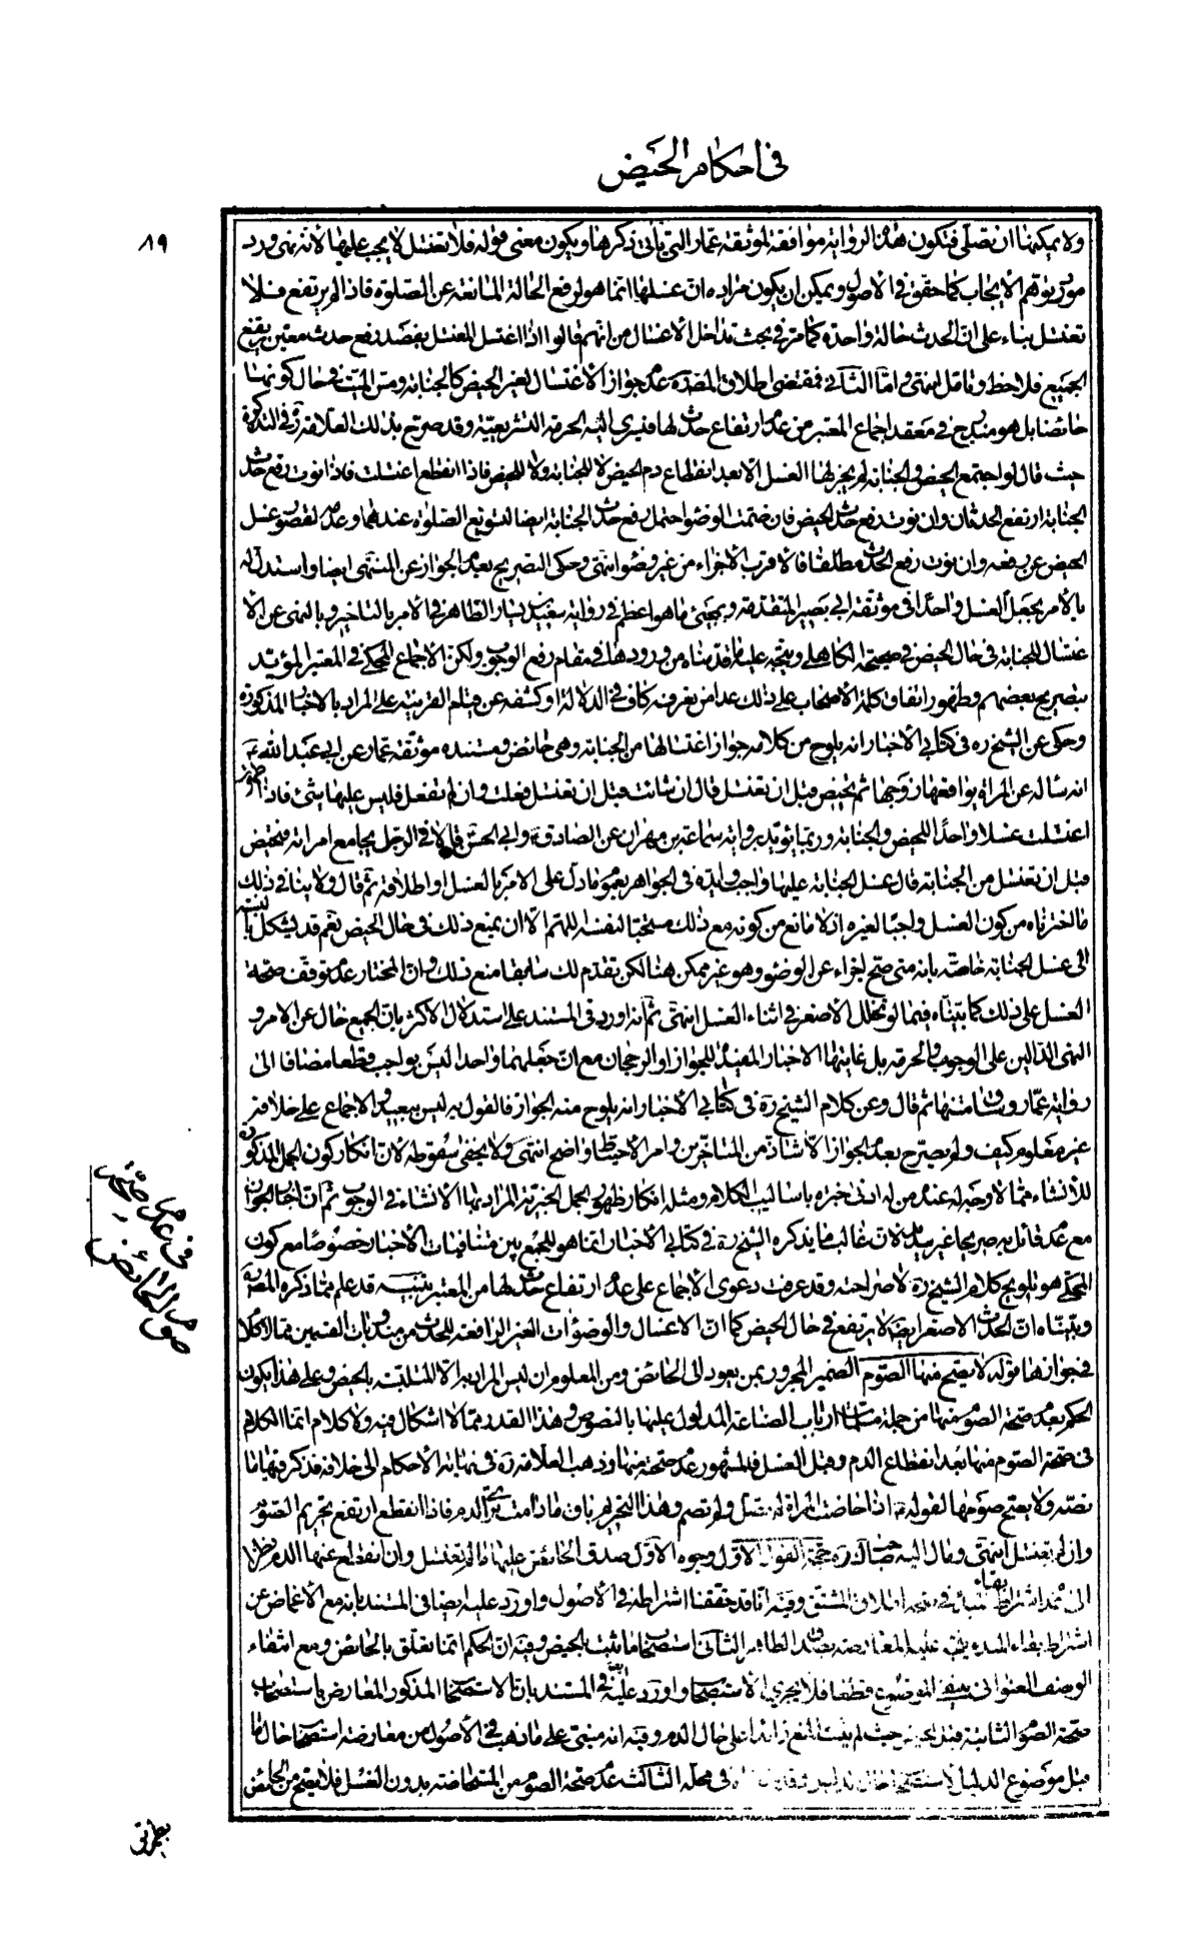 في احكام الحيض
٨٩
ولا يمكنها ان تصلى فتكون هذه الرواية موافقة لموثقة عمار التى يأتي ذكرها ويكون معنى قوله فلا تغتسل لا يجب عليها لانه نهى ورد
مورد توهم الايجاب كما حقق في الاصول ويمكن ان يكون مراده ان غسلها انما هو لرفع الحالة المانعة عن الصلوة فاذا لم يرتفع فلا
تغتسل بناء على ان الحدث حالة واحدة كما مر في بحث تداخل الاغسال من انهم قالوا اذا اغتسل المغتسل بقصد رفع حدث معين يرتفع
الجميع فلاحظ وتامل انتهى واما الثاني فمقتضى اطلاق المصنف ره عدم جواز الاغتسال لغير الحيض كالجنابة ومس الميت في حال كونها
حائضا بل هو مندرج في معقد اجماع المعتبر من عدم ارتفاع حدث لها فيسرى اليه الحرمة التشريعية وقد صرح بذلك العلامة ره في التذكرة
حيث قال لو اجتمع الحيض والجنابة لم يجز لها الغسل الا بعد انقطاع دم الحيض لا للجنابة ولا للحيض فاذا انقطع اغتسلت فاذا نوت رفع حدث
الجنابة ارتفع الحدثان وان نوت رفع حدث الحيض فان ضمت الوضوء احتمل رفع حدث الجنابة ايضا لتسويغ الصلوة عندهما وعدمه لقصور غسل
الحيض عن رفعه وان نوت رفع الحدث مطلقا فالاقرب الاجزاء من غير وضوء انتهى وحكى التصريح بعدم الجواز عن المنتهى ايضا واستدل له
بالامر بجعل الغسل واحدا في موثقة ابي بصير المتقدمة وبمجئ ما هو اعظم في رواية سعيد بن يسار الظاهر في الامر بالتاخير وبالنهى عن الا
غتسال للجنابة في حال الحيض في صحيحة الكاهلى ويتجه عليه ما قدمناه من ورودها في مقام رفع الوجوب ولكن الاجماع المحكى في المعتبر المؤيد
بتصريح بعضهم وظهور اتفاق كلمة الاصحاب على ذلك عدا من تعرفه كاف في الدلالة او كشفه عن قيام القرينة على المراد بالاخبار المذكورة
وحكى عن الشيخ ره في كتابي الأخبار انه يلوح من كلامه جواز اغتسالها من الجنابة وهى حائض ومستنده موثقة عمار عن ابي عبد الله ع
انه سأله عن المراة يواقعها زوجها ثم تحيض قبل ان تغتسل قال ان شائت قبل ان تغتسل فعلت وان لم تفعل فليس عليها شئ فاذا طهرت
اغتسلت غسلا واحدا للحيض والجنابة وربما يؤيد برواية سماعة بن مهران عن الصادق وابي الحسن ع قالا في الرجل يجامع امراته فتحيض
قبل ان تغتسل من الجنابة قال غسل الجنابة عليها واجب وايده في الجواهر بعموم ما دل على الامر بالغسل او اطلاقه ثم قال ولا ينافي ذلك
ما اخترناه من كون الغسل واجبا لغيره اذ لا مانع من كونه مع ذلك مستحبا لنفسه اللهم الا ان يمنع ذلك في حال الحيض نعم قد يشكل بالنسبة
الى غسل الجنابة خاصة بانه متى صح اجزاء عن الوضوء وهو غير ممكن هنا لكن تقدم لك سابقا منع ذلك وان المختار عدم توقف صحة
الغسل على ذلك كما بيناه فيما لو تخلل الاصغر في اثناء الغسل انتهى ثم انه اورد في المستند على استدلال الاكثر بان الجميع خال عن الامر و
النهى الدالين على الوجوب والحرمة بل غايتها الاخبار المفيد للجواز او الرجحان مع ان جعلهما واحدا ليس بواجب قطعا مضافا الى
رواية عمار وساق متنها ثم قال وعن كلام الشيخ ره في كتابي الأخبار انه يلوح منه الجواز فالقول به ليس ببعيد والاجماع على خلافه
غير معلوم كيف ولم يصرح بعدم الجواز الا شاذ من المتاخرين وامر الاحتياط واضح انتهى ولا يخفى سقوطه لان انكار كون الجمل المذكورة
للانشاء مما لا وجه له عند من له ادنى خبرة باساليب الكلام ومثله انكار ظهور الجمل الخبرية المراد بها الانشاء في الوجوب ثم ان اختيار الجواز
مع عدم قائل به صريحا غير سديد لان غالب ما يذكره الشيخ ره في كتابي الأخبار انما هو للجمع بين متنافيات الأخبار خصوصا مع كون
المحكى هو تلويح كلام الشيخ ره لا صراحته وقد عرفت دعوى الاجماع على عدم ارتفاع حدث لها من المعتبر تنبيه قد علم مما ذكره المصنف ره
وبيناه ان الحدث الاصغر ايضا لا يرتفع في حال الحيض كما ان الاغسال والوضوءات الغير الرافعة للحدث من مندوبات القسمين مما لا كلام
في جوازها قوله لا يصح منها الصوم الضمير المجرور بمن يعود الى الحائض ومن المعلوم ان ليس المراد بها الا المتلبسة بالحيض وعلى هذا يكون
الحكم بعدم صحة الصوم منها من جملة مسلمات ارباب الصناعة المدلول عليها بالنصوص وهذا القدر مما لا اشكال فيه ولا كلام انما الكلام
في صحة الصوم منها بعد انقطاع الدم وقبل الغسل فالمشهور عدم صحته منها وذهب العلامة ره في نهاية الاحكام الى خلافه فذكر فيها ما
نصه ولا يصح صومها لقوله ع اذا حاضت المراة لم تصل ولم تصم وهذا التحريم باق ما دامت ترى الدم فاذا انقطع ارتفع تحريم الصوم
وان لم تغتسل انتهى ومال اليه صاحب المدارك ره حجة القول الاول وجوه الاول صدق الحائض عليها ما لم تغتسل وان انقطع عنها الدم نظرا
الى عدم اشتراط بقاء المبدء في صحة اطلاق المشتق وفيه انا قد حققنا اشتراطه في الاصول واورد عليه ايضا في المستند بانه مع الاغماض عن
اشتراط بقاء المبدء يثبت عليه المعارضة بصدق الطاهر الثاني استصحاب ما ثبت للحيض وفيه ان الحكم انما تعلق بالحائض ومع انتفاء
الوصف العنواني ينتفى الموضوع قطعا فلا يجرى الاستصحاب واورد عليه ايضا في المستند بان الاستصحاب المذكور المعارض باستصحاب
صحة الصوم الثابتة قبل الحيض حيث لم يثبت المنع زائدا على حال الدم وفيه انه مبنى على ما ذهب في الأصول من معارضة استصحاب حال ما
قبل موضوع الدليل لاستصحاب حال في محله الثالث عدم صحة الصوم من المستحاضة بدون الغسل فلا يصح من الحائض
في عدم صحة
صوم الحائض
بطريق